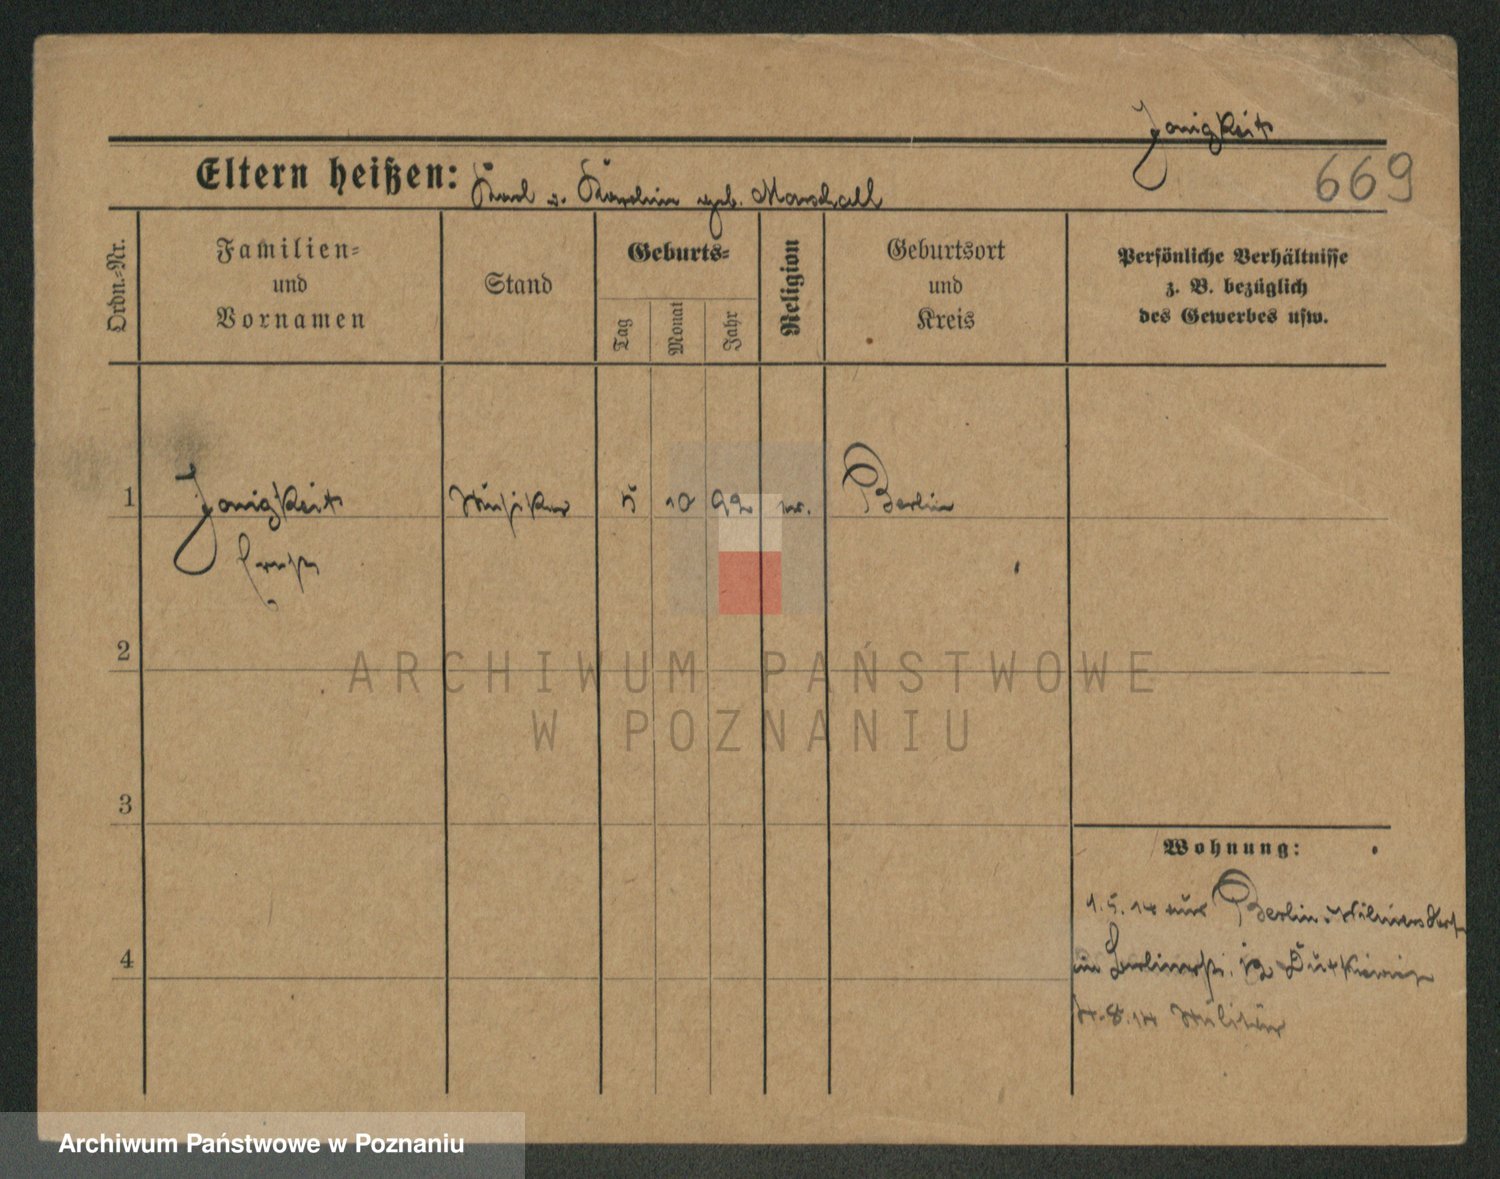 Janigkeit
669
Eltern heißen: Karl u. Karoline geb. Marschall
Ordn.-Nr.
Familien-
und
Vornamen
Stand
Geburts-
Tag
Monat
Jahr
Religion
Geburtsort
und
Kreis
Persönliche Verhältnisse
z. B. bezüglich
des Gewerbes usw.
1 Janigkeit Musiker 5 10 92 ev. Berlin
Ernst
2
ARCHIWUM PAŃSTWOWE
W POZNANIU
3
Wohnung:
1.5.14 aus Berlin-Wilmersdorf
4
12 Dutkiewicz
4.8.14 Militär
Archiwum Państwowe w Poznaniu